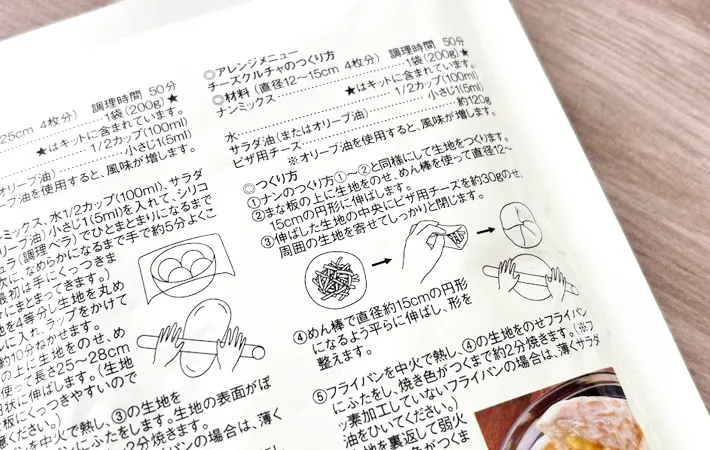 25cm 4枚分) 調理時間 50分
1袋(200g)★
★はキットに含まれています。
1/2カップ(100ml)
小さじ1(5ml)
オリーブ油)
ブ油を使用すると、風味が増します。
ミックス、水1/2カップ(100ml)、サラダ
リーブ油)小さじ1(5ml)を入れて、シリコ
(調理ベラ)でひとまとまりになるまで
なめらかになるまで手で約5分よくこ
最初は手にくっつきま
にまとまってきます。)
を4等分し生地を丸め
に入れ、ラップをかけて
約10分ねかせます。
の上に生地をのせ、め
使って長さ25～28cm
状に伸ばします。(生地
板にくっつきやすいので
ください。)
ンを中火で熱し、③の生地を
ンにふたをします。生地の表面がぼ
約2分焼きます。
ンの場合は、薄く
◎アレンジメニュー
チーズクルチャのつくり方
◎材料(直径12～15cm 4枚分) 調理時間 50分
ナンミックス 1袋(200g)★
★はキットに含まれています。
水 1/2カップ(100ml)
サラダ油(またはオリーブ油) 小さじ1(5ml)
ピザ用チーズ 約120g
※オリーブ油を使用すると、風味が増します。
◎つくり方
①ナンのつくり方①～②と同様にして生地をつくります。
②まな板の上に生地をのせ、めん棒を使って直径12～
15cmの円形に伸ばします。
③伸ばした生地の中央にピザ用チーズを約30gのせ、
周囲の生地を寄せてしっかりと閉じます。
④めん棒で直径約15cmの円形
になるよう平らに伸ばし、形を
整えます。
⑤フライパンを中火で熱し、④の生地をのせフライパン
にふたをし、焼き色がつくまで約2分焼きます。(※フ
ッ素加工していないフライパンの場合は、薄くサラダ
油をひいてください。)
を裏返して弱火